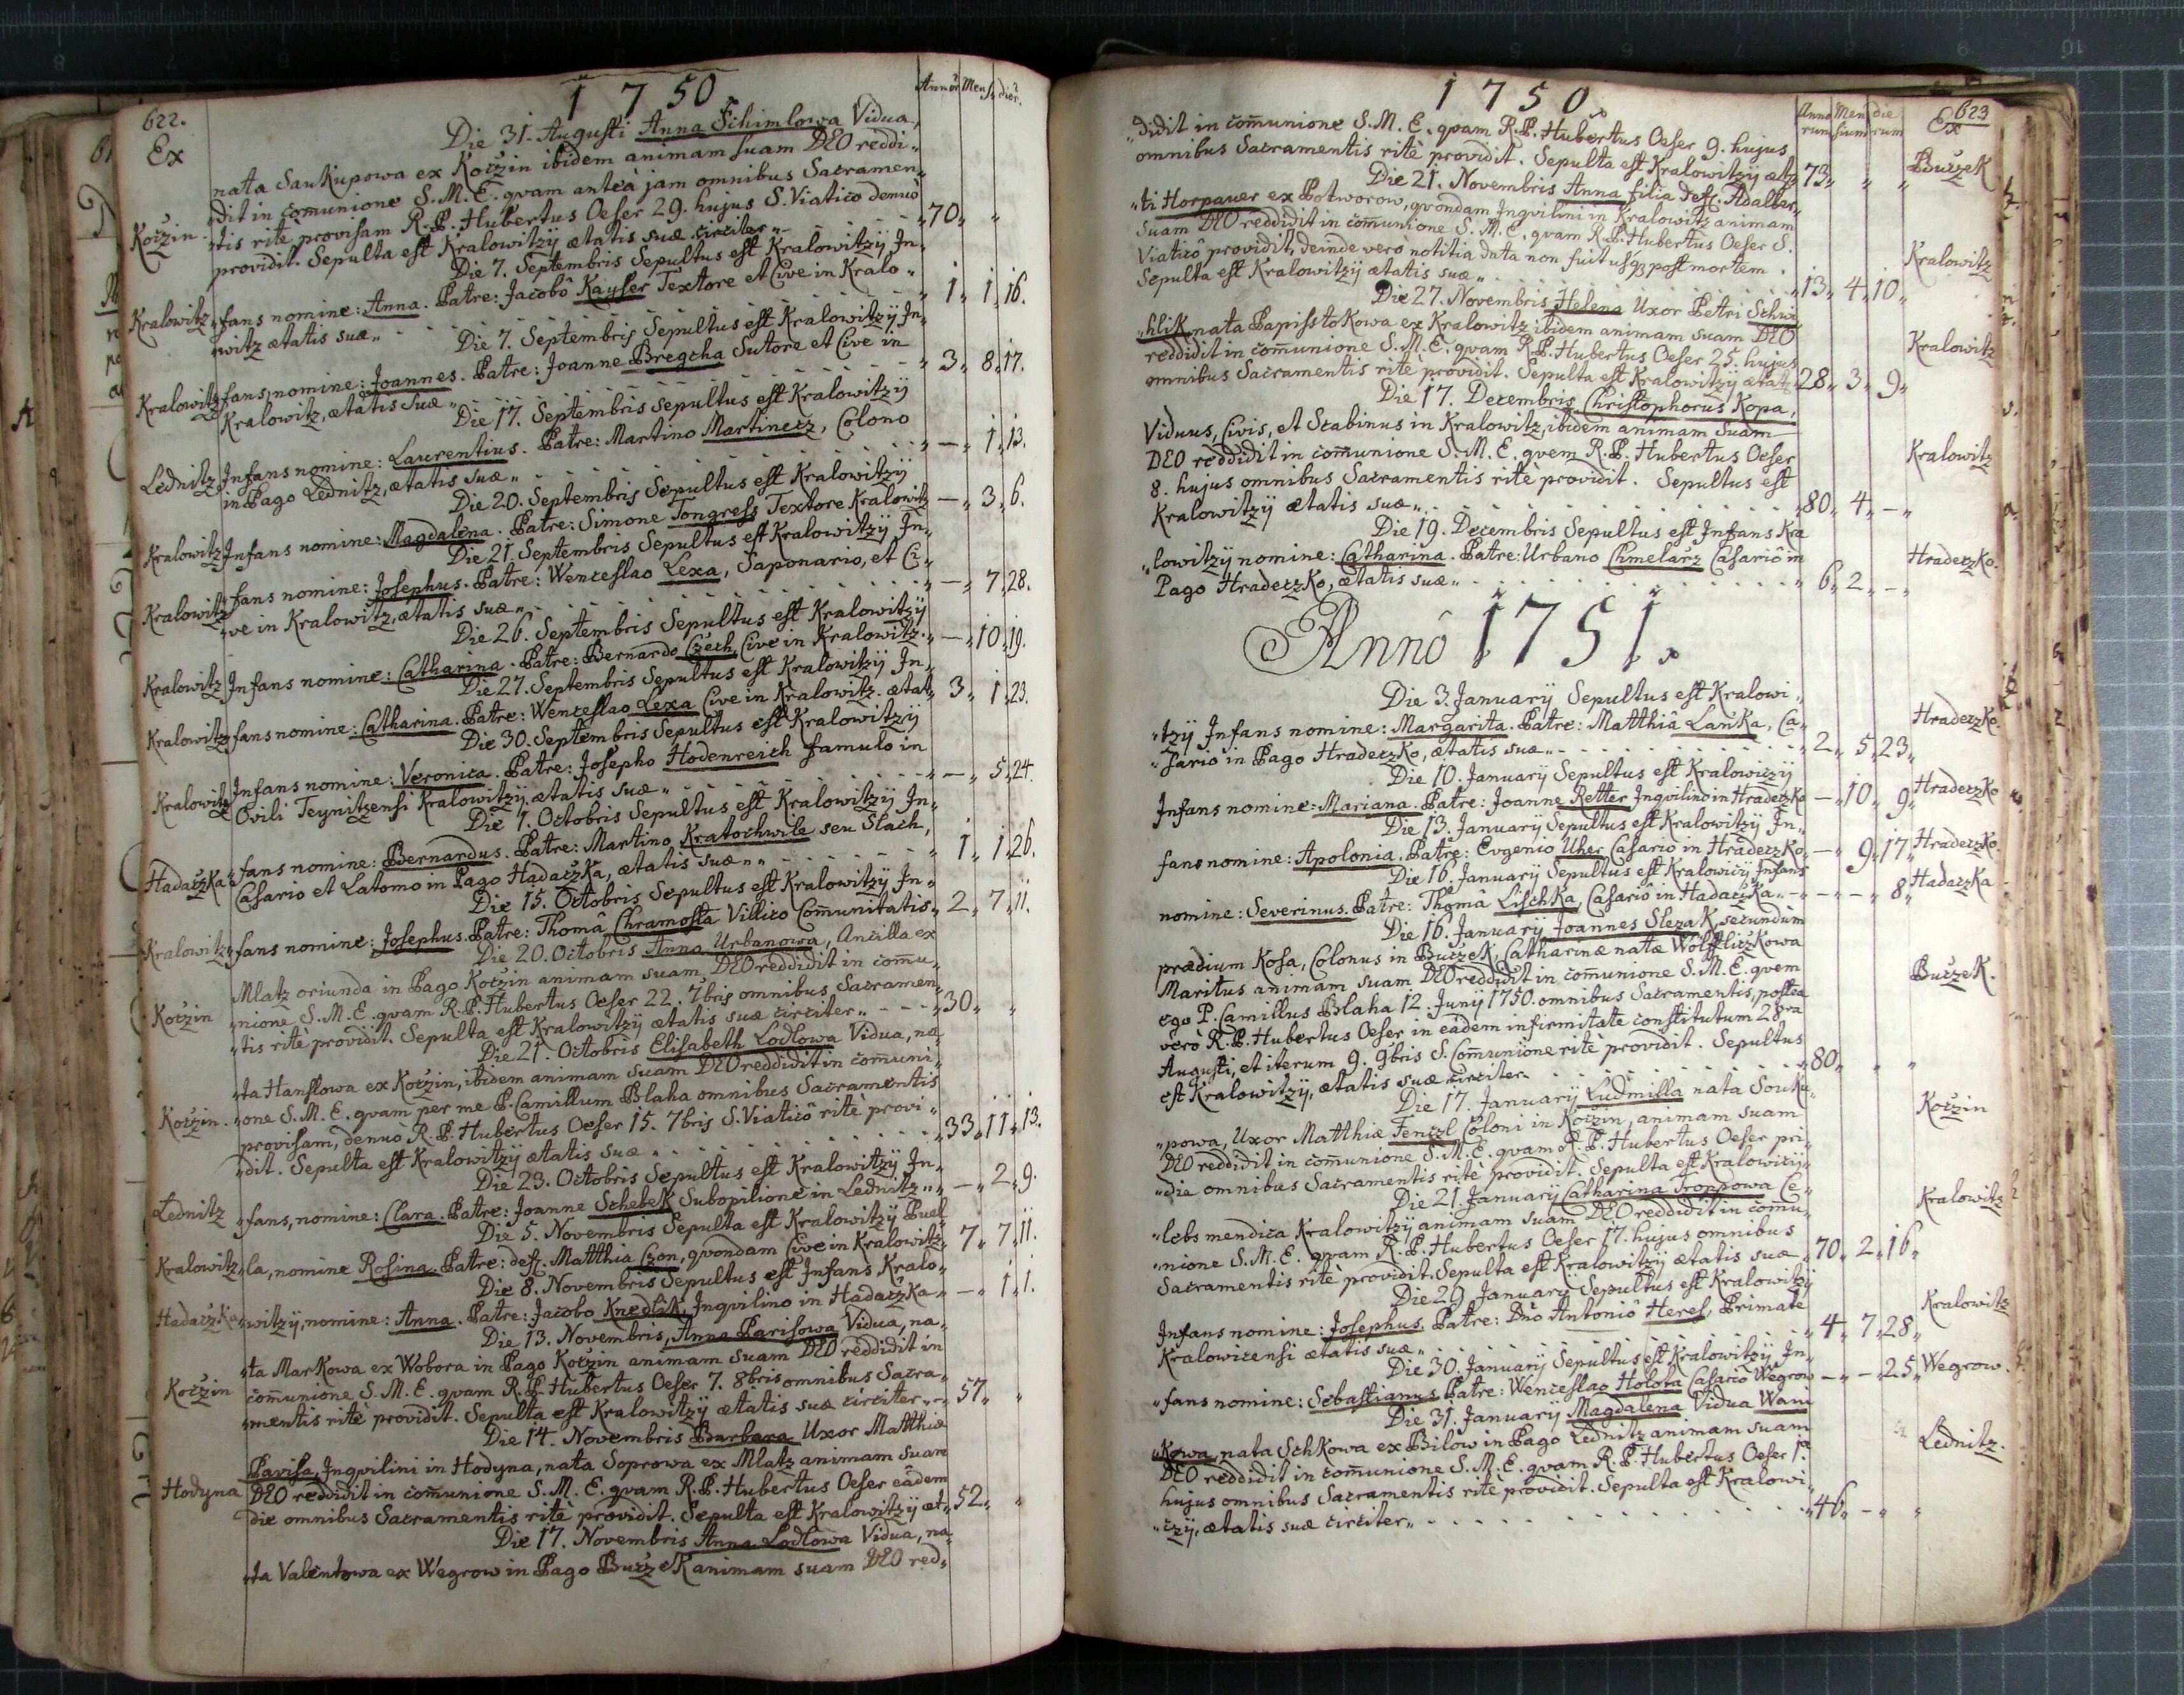 622.
1750.
Annor. Mens. dier.
Ex
Die 31. Augusti Anna Schimlowa Vidua,
nata Saukupowa ex Koczin ibidem animam suam DEO reddi„
„dit in com̄unione S.M.E. qvam antea jam omnibus Sacramen„
Koczin „tis ritè provisam R.P. Hubertus Oeser 29. hujus S. Viatico denuò
providit. Sepulta est Kralowitzÿ ætatis suæ circiter„ 70„ „
Die 7. Septembris Sepultus est Kralowitzÿ In„
Kralowitz „fans nomine: Anna. Patre: Jacobô Kayser Textore et Cive in Kralo„
„witz ætatis suæ„ 1„ 1„ 16.
Die 7. Septembris Sepultus est Kralowitzÿ In„
Kralowitz „fans, nomine: Joannes. Patre: Joanne Bregcha Sutore et Cive in
Kralowitz, ætatis suæ„ 3„ 8„ 17.
Die 17. Septembris sepultus est Kralowitzÿ
Lednitz Infans nomine: Laurentius. Patre: Martino Martinecz, Colono
in Pago Lednitz, ætatis suæ„ — „ 1„ 13.
Die 20. Septembris Sepultus est Kralowitzÿ
Kralowitz Infans nomine: Magdalena. Patre: Simone Tongress Textore Kralowitz — „ 3„ 6.
Die 21. Septembris Sepultus est Kralowitzÿ In„
Kralowitz „fans nomine: Josephus. Patre: Wenceslao Lexa, Saponario, et Ci„
„ve in Kralowitz, ætatis suæ„ — „ 7„ 28.
Die 26. Septembris Sepultus est Kralowitzÿ
Kralowitz Infans nomine: Catharina. Patre: Bernardo Czech, Cive in Kralowitz. — „ 10„ 19.
Die 27. Septembris Sepultus est Kralowitzÿ In„
Kralowitz „fans nomine: Catharina. Patre: Wenceslao Lexa Cive in Kralowitz. ætat„ 3„ 1„ 23.
Die 30. Septembris Sepultus est Kralowitzÿ
Kralowitz Infans nomine: Veronica. Patre: Josepho Hodenreich famulo in
Ovili Teynitzensi Kralowitzÿ, ætatis suæ„ — „ 5„ 24.
Die 7. Octobris Sepultus est Kralowitzÿ In„
Hadaczka „fans nomine: Bernardus. Patre: Martino Kratochwile seu Slach,
Casario et Latomo in Pago Hadaczka, ætatis suæ„ 1„ 1„ 26.
Die 15. Octobris Sepultus est Kralowitzÿ In„
Kralowitz „fans nomine: Josephus. Patre: Thomâ Chramosta Villico Com̄unitatis„ 2„ 7„ 11.
Die 20. Octobris Anna Urbanowa, Ancilla ex
Mlatz oriunda in Pago Koczin animam suam DEO reddidit in com̄u„
Koczin „nione S.M.E. qvam R.P. Hubertus Oeser 22. 7bris omnibus Sacramen„
„tis ritè providit. Sepulta est Kralowitzÿ ætatis suæ circiter„ 30„ „
Die 21. Octobris Elisabeth Lodlowa Vidua, na„
„ta Hanslowa ex Koczin, ibidem animam suam DEO reddidit in com̄uni„
Koczin. „one S.M.E. qvam per me P. Camillum Blaha omnibus Sacramentis
provisam, denuò R.P. Hubertus Oeser 15. 7bris S. Viaticô ritè provi„
„dit. Sepulta est Kralowitzÿ ætatis suæ „ 33„ 11„ 13.
Die 23. Octobris Sepultus est Kralowitzÿ In„
Lednitz „fans, nomine: Clara. Patre: Joanne Schebek Subopilione in Lednitz„ — „ 2„ 9.
Die 5. Novembris Sepulta est Kralowitzÿ Puel„
Kralowitz „la, nomine Rosina. Patre: def. Matthia Czon, qvondam Cive in Kralowitz„ 7„ 7„ 11.
Die 8. Novembris Sepultus est Infans Kralo„
Hadaczka „witzÿ, nomine: Anna. Patre: Jacobo Knedlik, Inqvilino in Hadaczka„ — „ 1„ 1.
Die 13. Novembris, Anna Parisowa Vidua, na„
„ta Markowa ex Wobora in Pago Koczin animam suam DEO reddidit in
Koczin com̄unione S.M.E. qvam R.P. Hubertus Oeser 7. 8bris omnibus Sacra„
„mentis ritè providit. Sepulta est Kralowitzÿ ætatis suæ circiter„ 57„ „
Die 14. Novembris Barbara Uxor Matthiæ
Parisa, Inqvilini in Hodyna, nata Soprowa ex Mlatz animam suam
Hodyna DEO reddidit in com̄unione S.M.E. qvam R.P. Hubertus Oeser eâdem
die omnibus Sacramentis ritè providit. Sepulta est Kralowitzÿ æt„ 52„ „
Die 17. Novembris Anna Lodlowa Vidua, na„
„ta Valentowa ex Wegrow in Pago Buczek animam suam DEO red„
1750.
Annorum Mensium dierum
623
Ex
„didit in com̄unione S.M.E. qvam R.P. Hubertus Oeser 9. hujus
omnibus Sacramentis ritè providit. Sepulta est Kralowitzÿ æt„ 73„ „ „ Buczek
Die 21. Novembris Anna filia def. Adalber„
„ti Horpauer ex Potworow, qvondam Inqvilini in Kralowitz animam
suam DEO reddidit in com̄unione S.M.E. qvam R.P. Hubertus Oeser S.
Viaticô providit, deinde verò notitia data non fuit usq; post mortem. Kralowitz
Sepulta est Kralowitzÿ ætatis suæ„ 13„ 4„ 10„
Die 27. Novembris Helena Uxor Petri Schw
„hlik nata Papisstokowa ex Kralowitz ibidem animam suam DEO
reddidit in com̄unione S.M.E. qvam R.P. Hubertus Oeser 25. hujus Kralowitz
omnibus Sacramentis ritè providit. Sepulta est Kralowitzÿ ætat„ 28„ 3„ 9„
Die 17. Decembris Christophorus Kopa,
Viduus, Civis, et Scabinus in Kralowitz, ibidem animam suam
DEO reddidit in com̄unione S.M.E. qvem R.P. Hubertus Oeser Kralowitz
8. hujus omnibus Sacramentis ritè providit. Sepultus est
Kralowitzÿ ætatis suæ„ 80„ 4„ — „
Die 19. Decembris Sepultus est Infans Kra
„lowitzÿ nomine: Catharina. Patre: Urbano Chmelarz Casariô in Hradeczko.
Pago Hradeczko, ætatis suæ„ 6„ 2„ — „
Annô 1751.
Die 3. Januarÿ Sepultus est Kralowi„
„tzÿ Infans nomine: Margarita. Patre: Matthiâ Lanka, Ca„ Hradeczko.
„sario in Pago Hradeczko, ætatis suæ„ 2„ 5„ 23„
Die 10. Januarÿ Sepultus est Kralowiczÿ
Infans nomine: Mariana. Patre: Joanne Retter Inqvilino in Hradeczko — „ 10„ 9„ Hradeczko
Die 13. Januarÿ Sepultus est Kralowitzÿ In„
fans nomine: Apolonia. Patre: Evgenio Uher Casario in Hradeczko„ — „ 9„ 17„ Hradeczko.
Die 16. Januarÿ Sepultus est Kralowiczÿ Infans
nomine: Severinus. Patre: Thomâ Lischka, Casariô in Hadaczka„ — „ — „ 8„ Hadaczka
Die 16. Januarÿ Joannes Slezak, secundùm
prædium Kosa, Colonus in Buczek, Catharinæ natæ Wölfliczkowa
Maritus animam suam DEO reddidit in com̄unione S.M.E. qvem Buczek.
ego P. Camillus Blaha 12. Junÿ 1750. omnibus Sacramentis, postea
verò R.P. Hubertus Oeser in eâdem infirmitate constitutum 28va
Augusti, et iterum 9. 9bris S. Com̄unione ritè providit. Sepultus
est Kralowitzÿ, ætatis suæ circiter 80„ „ „
Die 17. Januarÿ Ludmilla nata Souku„
„powa, Uxor Matthiæ Fenczl Coloni in Koczin, animam suam Koczin
DEO reddidit in com̄unione S.M.E. qvam R.P. Hubertus Oeser pri„
„die omnibus Sacramentis ritè providit. Sepulta est Kralowiczÿ„
Die 21. Januarÿ Catharina Troppowa Ce„
„lebs mendica Kralowitzÿ animam suam DEO reddidit in com̄u„ Kralowitz
„nione S.M.E. qvam R.P. Hubertus Oeser 17. hujus omnibus
Sacramentis ritè providit. Sepulta est Kralowitzÿ ætatis suæ„ 70„ 2„ 16„
Die 29. Januarÿ Sepultus est Kralowitzÿ
Infans nomine: Josephus. Patre: Dn̄o Antoniô Heres, Primate Kralowitz
Kralowicensi ætatis suæ„ 4„ 7„ 28„
Die 30. Januarÿ Sepultus est Kralowitzÿ In„
„fans nomine: Sebastianus. Patre: Wenceslao Holota Casariô Wegrow — „ — „ 25„ Wegrow.
Die 31. Januarÿ Magdalena Vidua Wani
„kowa, nata Schkowa ex Bilow in Pago Lednitz animam suam Lednitz.
DEO reddidit in com̄unione S.M.E. qvam R.P. Hubertus Oeser 1ma
hujus omnibus Sacramentis ritè providit. Sepulta est Kralowi„
„czÿ, ætatis suæ circiter„ 46„ — „ „